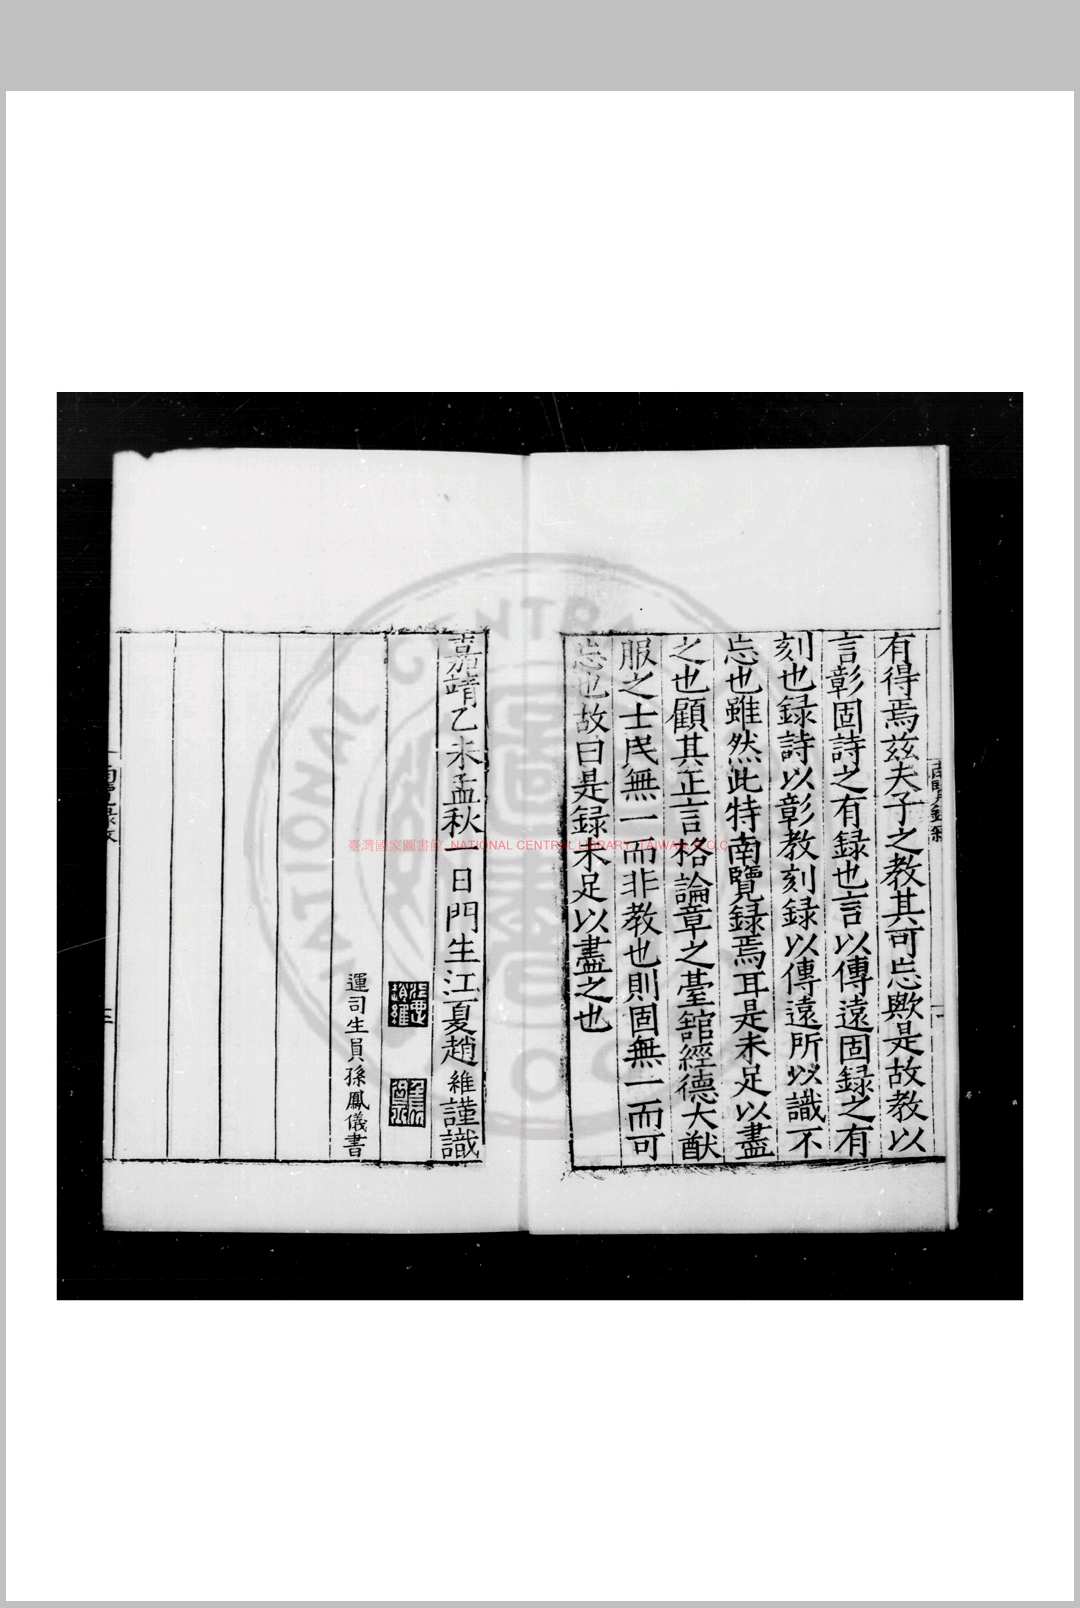 有得焉茲夫子之教其可忘歟是故教以
言彰固詩之有録也言以傳遠固録之有
刻也録詩以彰教刻録以傳遠所以識不
忘也雖然此特南覽録焉耳是未足以盡
之也顧其正言格論章之臺舘經德大猷
服之士民無一而非教也則固無一而可
忘也故曰是録未足以盡之也
嘉靖乙未孟秋一日門生江夏趙維謹識
運司生員孫鳳儀書
臺灣國家圖書館, NATIONAL CENTRAL LIBRARY, TAIWAN, R.O.C